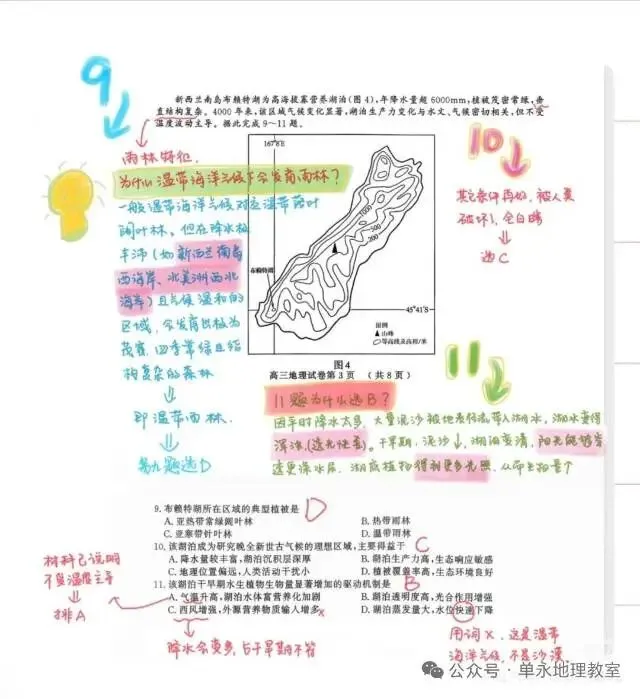 9
新西兰南岛布赖特湖为高海拔寡营养湖泊(图4),年降水量超6000mm,植被茂密常绿,垂
直结构复杂。4000年来,该区域气候变化显著,湖泊生产力变化与水文、气候密切相关,但不受
温度波动主导。据此完成9~11题。
雨林特征.
为什么温带海洋气候下会发育雨林?
一般温带海洋气候对应温带落叶
阔叶林。但在降水极
丰沛(如新西兰南岛
西海岸、北美洲西北
海岸)且气候温和的
区域,会发育出极为
茂密、四季常绿且结
构复杂的森林
即温带雨林.
第九题选D
167°8'E
1000
500
200
布赖特湖
45°41'S
图例
山峰
等高线及高程/米
图4
高三地理试卷第3页 (共8页)
10
其它条件再好,被人类
破坏,全白瞎
选C
11
11题为什么选B?
因平时降水太多,大量泥沙被地表径流带入湖水,湖水变得
浑浊(透光性差)。干旱期,泥沙↓,湖泊变清,阳光能够穿
透更深水层,湖底植物得到更多光照,从而生物量↑
9.布赖特湖所在区域的典型植被是 D
A.亚热带常绿阔叶林 B.热带雨林
C.亚寒带针叶林 D.温带雨林
10.该湖泊成为研究晚全新世古气候的理想区域,主要得益于 C
A.降水量较丰富,湖泊沉积层深厚 B.湖泊生产力高,生态响应敏感
C.地理位置偏远,人类活动干扰小 D.植被覆盖率高,生态环境良好
11.该湖泊干旱期水生植物生物量显著增加的驱动机制是 B
A.气温升高,湖泊水体富营养化加剧 B.湖泊透明度高,光合作用增强
C.西风增强,外源营养物质输入增多 x D.湖泊蒸发量大,水位快速下降
材料已说明
不受温度主导
排A
降水会变多,与干旱期不符
用词X,这是温带
海洋气候,不是沙漠.
公众号·单永地理教室